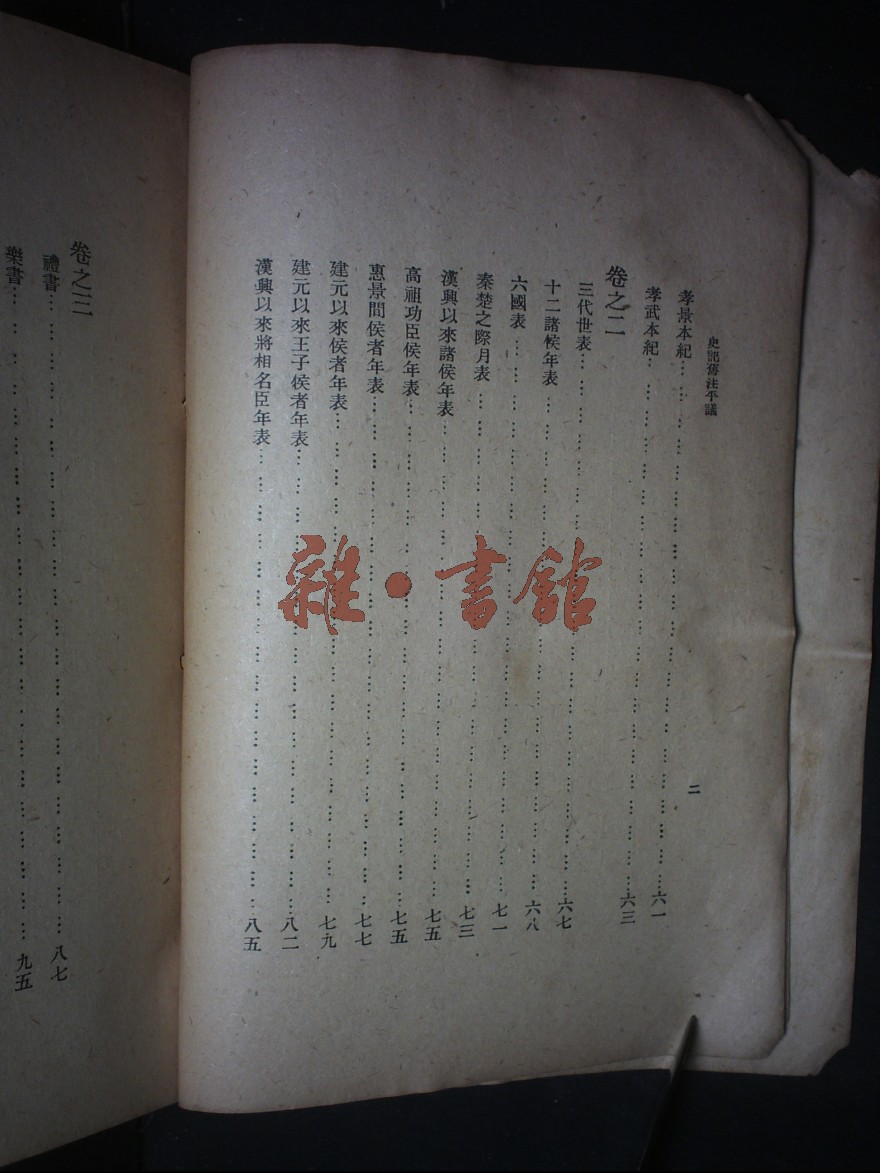 史記舊注平議
二
孝景本紀……六一
孝武本紀……六三
卷之二
三代世表……六七
十二諸侯年表……六八
六國表……七一
秦楚之際月表……七三
漢興以來諸侯年表……七五
高祖功臣侯年表……七五
惠景間侯者年表……七七
建元以來侯者年表……七九
建元以來王子侯者年表……八二
漢興以來將相名臣年表……八五
卷之三
禮書……八七
樂書……九五
雜·書館